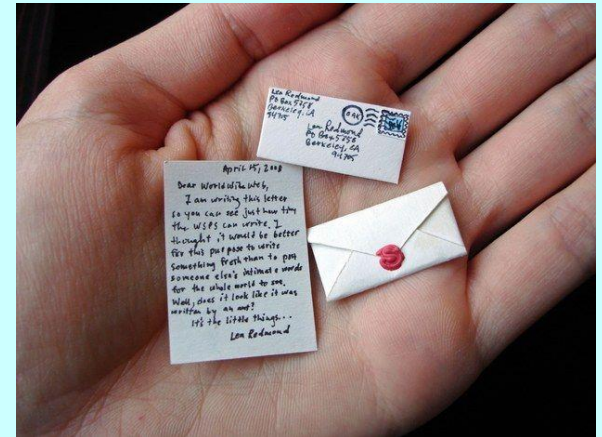 Lea Redmond
PO Box 5758
Berkeley, CA
94705
Lea Redmond
PO Box 5758
Berkeley, CA
94705
April 15, 2008
Dear World Wide Web,
I am writing this letter
so you can see just how tiny
the WSPS can write. I
thought it would be better
for this purpose to write
something fresh than to post
someone else's intimate words
for the whole world to see.
Well, does it look like it was
written by an ant?
It's the little things...
Lea Redmond